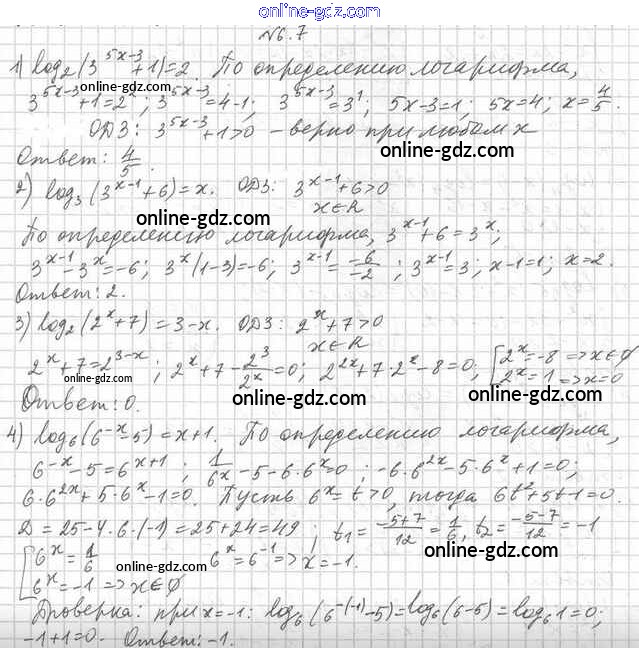 online-gdz.com
№6.7
1) log₂(3^(5x-3)+1)=2. По определению логарифма,
3^(5x-3)+1=2²; 3^(5x-3)=4-1; 3^(5x-3)=3¹; 5x-3=1; 5x=4; x=4/5.
online-gdz.com
ОДЗ: 3^(5x-3)+1>0 - верно при любом x
Ответ: 4/5.
online-gdz.com
online-gdz.com
2) log₃(3^(x-1)+6)=x. ОДЗ: 3^(x-1)+6>0
x∈R
online-gdz.com
По определению логарифма, 3^(x-1)+6=3^x;
3^(x-1)-3^x=-6; 3^x(1-3)=-6; 3^(x-1)=-6/-2; 3^(x-1)=3; x-1=1; x=2.
Ответ: 2.
online-gdz.com
3) log₂(2^x+7)=3-x. ОДЗ: 2^x+7>0
x∈R
2^x+7=2^(3-x); 2^x+7-2³/2^x=0; 2^(2x)+7·2^x-8=0; [2^x=-8 => x∈∅
2^x=1 => x=0
online-gdz.com
online-gdz.com
online-gdz.com
Ответ: 0.
4) log₆(6^(-x)-5)=x+1. По определению логарифма,
6^(-x)-5=6^(x+1); 1/6^x-5-6·6^x=0; -6·6^(2x)-5·6^x+1=0;
online-gdz.com
6·6^(2x)+5·6^x-1=0. Пусть 6^x=t>0, тогда 6t²+5t-1=0.
D=25-4·6·(-1)=25+24=49; t₁=(-5+7)/12=1/6, t₂=(-5-7)/12=-1
online-gdz.com
online-gdz.com
[6^x=1/6 6^x=6^(-1) => x=-1.
6^x=-1 => x∈∅
Проверка: при x=-1: log₆(6^(-(-1))-5)=log₆(6-5)=log₆1=0;
-1+1=0. Ответ: -1.
online-gdz.com